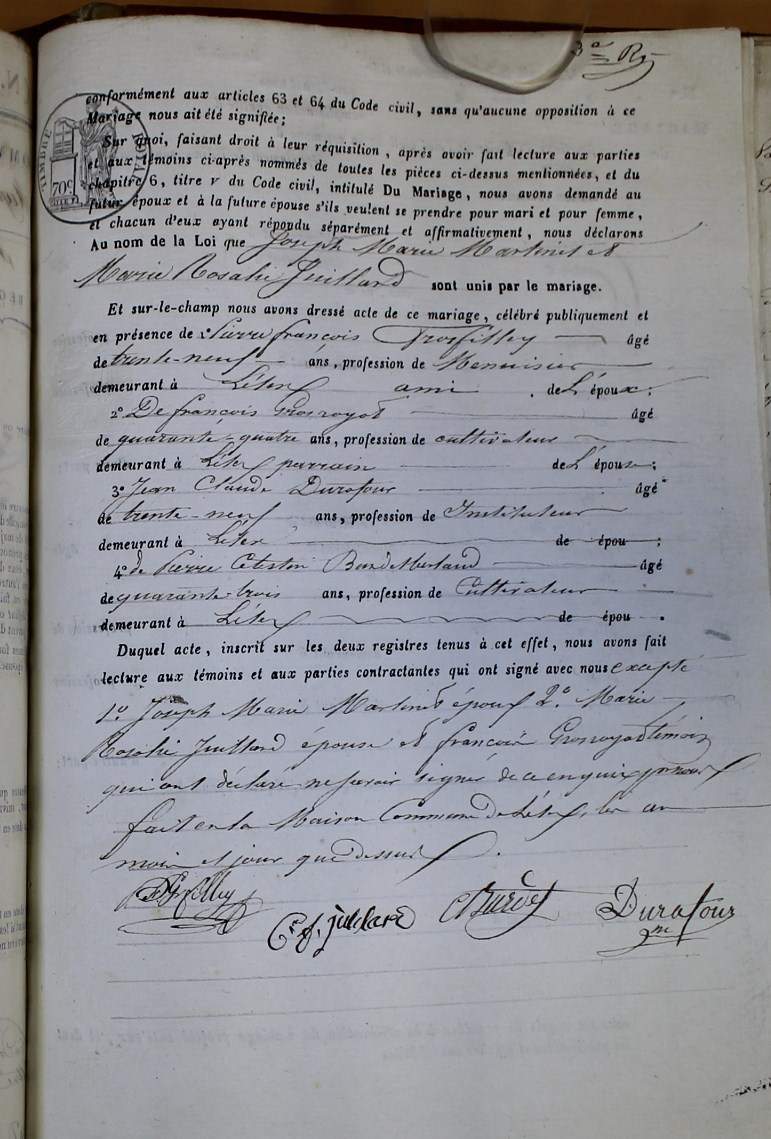 3ª Rº
conformément aux articles 63 et 64 du Code civil, sans qu'aucune opposition à ce
Mariage nous ait été signifiée;
Sur quoi, faisant droit à leur réquisition, après avoir fait lecture aux parties
et aux témoins ci-après nommés de toutes les pièces ci-dessus mentionnées, et du
chapitre 6, titre v du Code civil, intitulé Du Mariage, nous avons demandé au
futur époux et à la future épouse s'ils veulent se prendre pour mari et pour femme,
et chacun d'eux ayant répondu séparément et affirmativement, nous déclarons
Au nom de la Loi que Joseph Marie Martinet et
Marie Rosalie Juilland sont unis par le mariage.
Et sur-le-champ nous avons dressé acte de ce mariage, célébré publiquement et
en présence de 1º Pierre françois Grosfilley âgé
de trente-neuf ans, profession de Menuisier
demeurant à Lélex ami de L'époux;
2º De françois Grosroyat âgé
de quarante-quatre ans, profession de cultivateur
demeurant à Lélex parrain de L'épouse;
3º Jean Claude Durafour âgé
de trente-neuf ans, profession de Instituteur
demeurant à Lélex de épou ;
4º de Pierre Célestin âgé
de quarante-trois ans, profession de Cultivateur
demeurant à Lélex de épou .
Duquel acte, inscrit sur les deux registres tenus à cet effet, nous avons fait
lecture aux témoins et aux parties contractantes qui ont signé avec nous excepté
1º Joseph Marie Martinet époux 2º Marie
Rosalie Juilland épouse et françois Grosroyat témoin
qui ont déclaré ne savoir signer de ce enquis
fait en la Maison Commune de Lélex, les an
mois et jour que dessus.
Durafour
TIMBRE
70c